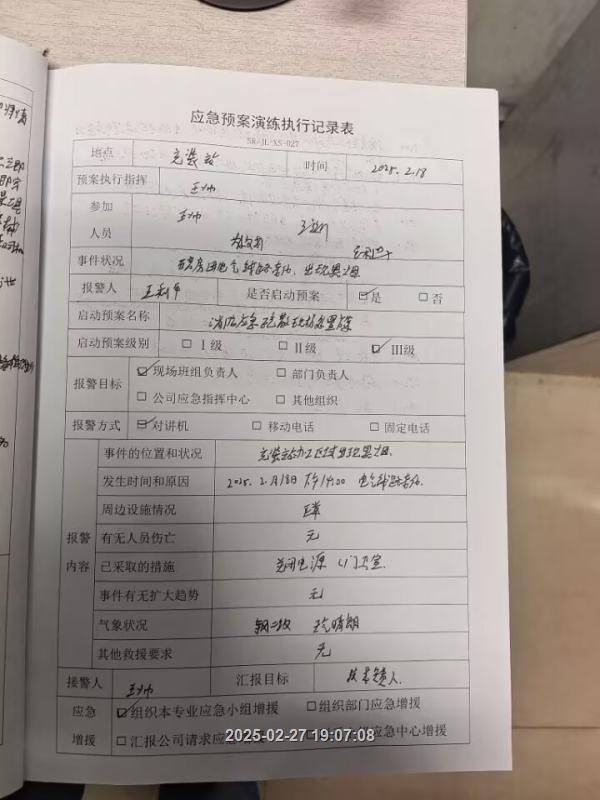 应急预案演练执行记录表
SR/JL-XS-027
地点 充装站 时间 2025.2.18
预案执行指挥 王帅
参加 王帅
人员
事件状况 出现黑烟
报警人 王利军 是否启动预案 ☑是 □否
启动预案名称
启动预案级别 □Ⅰ级 □Ⅱ级 ☑Ⅲ级
报警目标 ☑现场班组负责人 □部门负责人
□公司应急指挥中心 □其他组织
报警方式 ☑对讲机 □移动电话 □固定电话
报警内容
事件的位置和状况 充装站 出现黑烟
发生时间和原因 2025.2月18日 下午14:00 电气线路老化
周边设施情况 正常
有无人员伤亡 无
已采取的措施 关闭电源
事件有无扩大趋势 无
气象状况 晴朗
其他救援要求 无
接警人 王帅 汇报目标 负责人
应急 ☑组织本专业应急小组增援 □组织部门应急增援
增援 □汇报公司请求应急增援 应急中心增援
2025-02-27 19:07:08